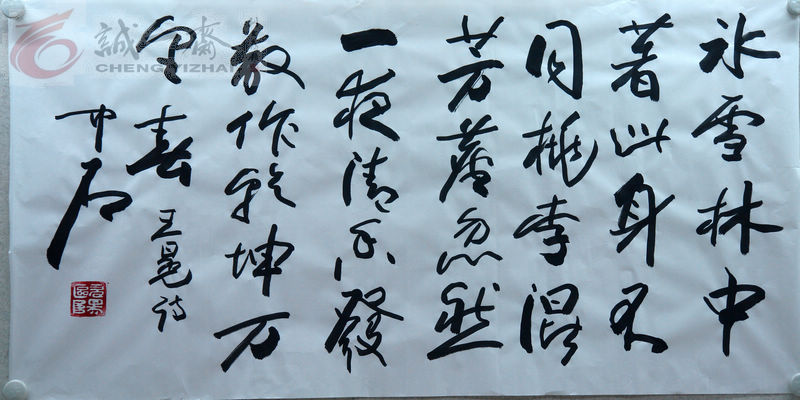 冰雪林中
著此身不
同桃李混
芳塵忽然
一夜清香發
散作乾坤万
里春 王冕诗
中石
CHENGYIZHAI